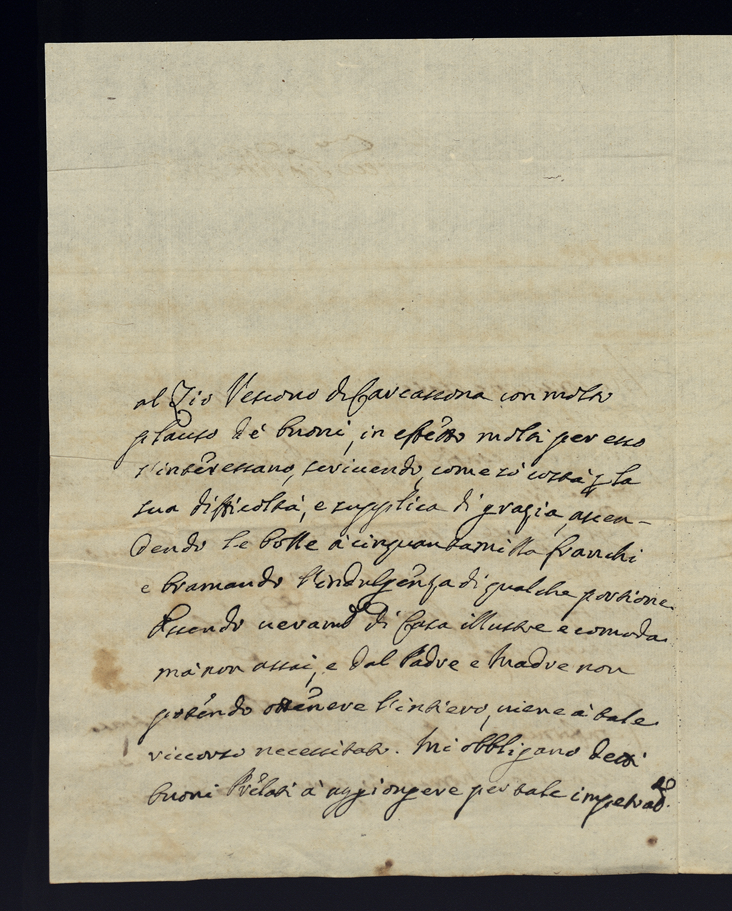 al Zio Vescovo di Carcassona con molto
plauso de' buoni, in effetto molti per esso
s'interessano, scrivendo, come sò costà p la
sua difficoltà, e supplica di grazia, ascen-
dendo le bolle à cinquantamilla franchi
e bramando l'indulgenza di qualche portione.
Essendo veramte di Casa illustre e comoda
mà non assai, e dal Padre e Madre non
potendo ottenere l'intiero, viene à tale
riccorso necessitato. Mi obbligano detti
buoni Prelati a' aggiongere per tale